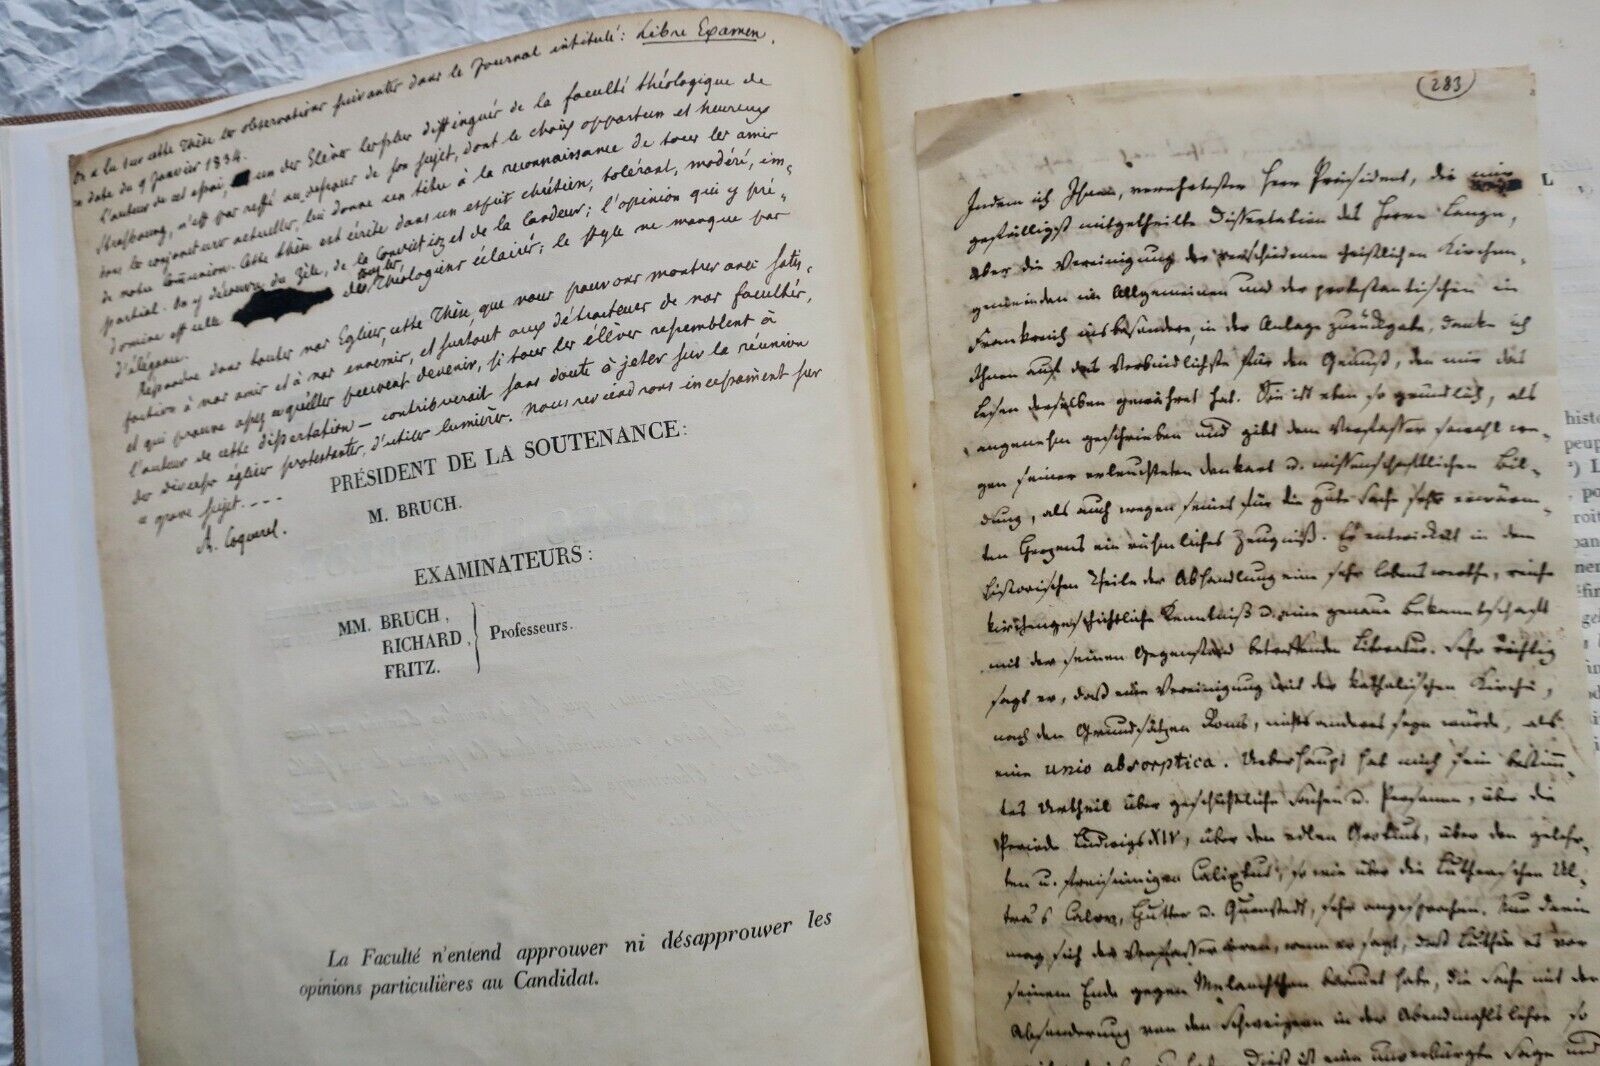 On a lu sur cette Thèse les observations suivantes dans le Journal intitulé: Libre Examen,
en date du 9 Janvier 1834.
L'auteur de cet essai, un des Elèves les plus distingués de la faculté théologique de
Strasbourg, n'est pas resté au dessous de son sujet, dont le choix opportun et heureux
dans les conjonctures actuelles, lui donne un titre à la reconnaissance de tous les amis
de notre Communion. Cette thèse est écrite dans un esprit chrétien, tolérant, modéré, im-
partial. On y découvre du Zèle, de la Conviction et de la Candeur; l'opinion qui y pré-
domine est celle de tous les Théologiens éclairés; le style ne manque pas
d'élégance.
Répandre dans toutes nos Eglises, cette Thèse, que nous pouvons montrer avec satis-
faction à nos amis et à nos ennemis, et surtout aux détracteurs de nos facultés,
et qui prouve assez ce qu'elles peuvent devenir, si tous les élèves ressemblent à
l'auteur de cette dissertation — contribuerait sans doute à jeter sur la réunion
des diverses églises protestantes, d'utiles lumières. Nous reviendrons incessamment sur
ce grave sujet. - - - -
A. Coquerel.
PRÉSIDENT DE LA SOUTENANCE:
M. BRUCH.
EXAMINATEURS:
MM. BRUCH,
RICHARD, Professeurs.
FRITZ.
La Faculté n'entend approuver ni désapprouver les
opinions particulières au Candidat.
283
Indem ich Ihnen, verehrtester Herr Präsident, die mir
gefälligst mitgetheilte Dissertation des Herrn Lange,
über die Vereinigung der verschiedenen christlichen Kirchen-
gemeinden im Allgemeinen und der protestantischen in
Frankreich insbesondere, in der Anlage zurückgebe, danke ich
Ihnen auf das Verbindlichste für den Genuß, den mir das
Lesen derselben gewährt hat. Sie ist eben so gründlich, als
angenehm geschrieben und gibt dem Verfasser sowohl we-
gen seiner erleuchteten Denkart u. wissenschaftlichen Bil-
dung, als auch wegen seines für die gute Sache sehr erwärm-
ten Herzens ein rühmliches Zeugniß. Er entwickelt in dem
historischen Theile der Abhandlung eine sehr lobenswerthe, reiche
kirchengeschichtliche Kenntniß u. eine genaue Bekanntschaft
mit der seinen Gegenstand betreffenden Literatur. Sehr richtig
sagt er, daß eine Vereinigung mit der katholischen Kirche,
nach den Grundsätzen Roms, nichts anderes seyn würde, als
eine unio absorptica. Ueberhaupt hat mich sein bestimm-
tes Urtheil über geschichtliche Sachen u. Personen, über die
Periode Ludwigs XIV, über den edlen Grotius, über den gelehr-
ten u. freisinnigen Calixtus, so wie über die Lutherischen Ul-
tra's Calov, Hutter u. Quenstedt, sehr angesprochen. Nur darin
mag sich der Verfasser irren, wenn er sagt, daß Luther es vor
seinem Ende gegen Melanchthon bereuet habe, die Sache mit der
Absonderung von den Schweizern in der Abendmahlslehre so
Dieß ist eine unverbürgte Sage und
L
histo
peup